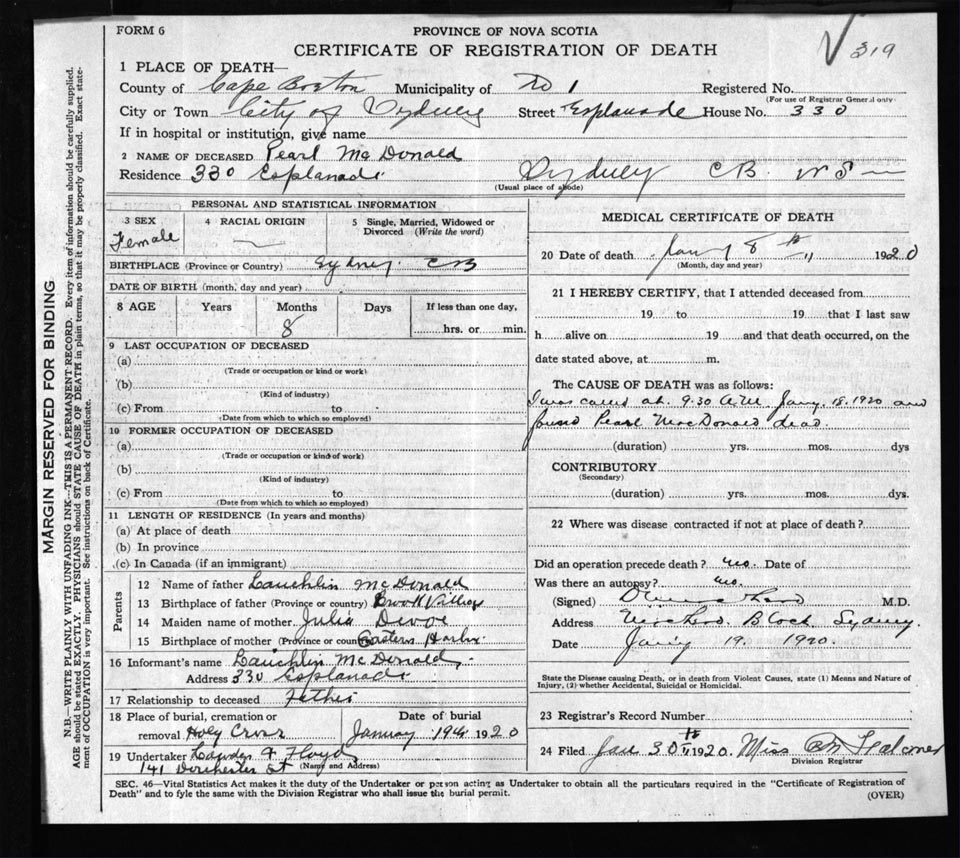 FORM 6
PROVINCE OF NOVA SCOTIA
CERTIFICATE OF REGISTRATION OF DEATH
319
1 PLACE OF DEATH—
County of Cape Breton Municipality of No 1 Registered No.
(For use of Registrar General only
City or Town City of Sydney Street Esplanade House No. 330
If in hospital or institution, give name
2 NAME OF DECEASED Pearl McDonald
Residence 330 Esplanade Sydney CB. N S
(Usual place of abode)
PERSONAL AND STATISTICAL INFORMATION
3 SEX Female
4 RACIAL ORIGIN —
5 Single, Married, Widowed or Divorced (Write the word)
BIRTHPLACE (Province or Country) Sydney. CB
DATE OF BIRTH (month, day and year)
8 AGE Years Months 8 Days If less than one day,
hrs. or min.
9 LAST OCCUPATION OF DECEASED
(a)
(Trade or occupation or kind or work)
(b)
(Kind of industry)
(c) From to
(Date from which to which so employed)
10 FORMER OCCUPATION OF DECEASED
(a)
(Trade or occupation or kind of work)
(b)
(Kind of industry)
(c) From to
(Date from which to which so employed)
11 LENGTH OF RESIDENCE (In years and months)
(a) At place of death
(b) In province
(c) In Canada (if an immigrant)
Parents
12 Name of father Lauchlin McDonald
13 Birthplace of father (Province or country) Brook Village
14 Maiden name of mother Julia Devoe
15 Birthplace of mother (Province or country) Eastern Harbr
16 Informant's name Lauchlin McDonald
Address 330 Esplanade
17 Relationship to deceased Father
18 Place of burial, cremation or removal Holy Cross
Date of burial January 19th 1920
19 Undertaker & Floyd
141 Dorchester St (Name and Address)
MEDICAL CERTIFICATE OF DEATH
20 Date of death Jany 8th 1920
(Month, day and year)
21 I HEREBY CERTIFY, that I attended deceased from
19 to 19 that I last saw
h alive on 19 and that death occurred, on the
date stated above, at m.
The CAUSE OF DEATH was as follows:
I was called at 9.30 A.M. Jany. 18. 1920 and
found Pearl MacDonald dead.
(duration) yrs. mos. dys
CONTRIBUTORY
(Secondary)
(duration) yrs. mos. dys.
22 Where was disease contracted if not at place of death?
Did an operation precede death? no. Date of
Was there an autopsy? no.
(Signed) M.D.
Address Block, Sydney.
Date Jan'y 19. 1920.
State the Disease causing Death, or in death from Violent Causes, state (1) Means and Nature of
Injury, (2) whether Accidental, Suicidal or Homicidal.
23 Registrar's Record Number
24 Filed Jan 30th 1920. Miss Falconer
Division Registrar
SEC. 46—Vital Statistics Act makes it the duty of the Undertaker or person acting as Undertaker to obtain all the particulars required in the "Certificate of Registration of
Death" and to fyle the same with the Division Registrar who shall issue the burial permit.
(OVER)
MARGIN RESERVED FOR BINDING
N.B.—WRITE PLAINLY WITH UNFADING INK—THIS IS A PERMANENT RECORD. Every item of information should be carefully supplied.
AGE should be stated EXACTLY. PHYSICIANS should STATE CAUSE OF DEATH in plain terms, so that it may be properly classified. Exact state-
ment of OCCUPATION is very important. See instructions on back of Certificate.